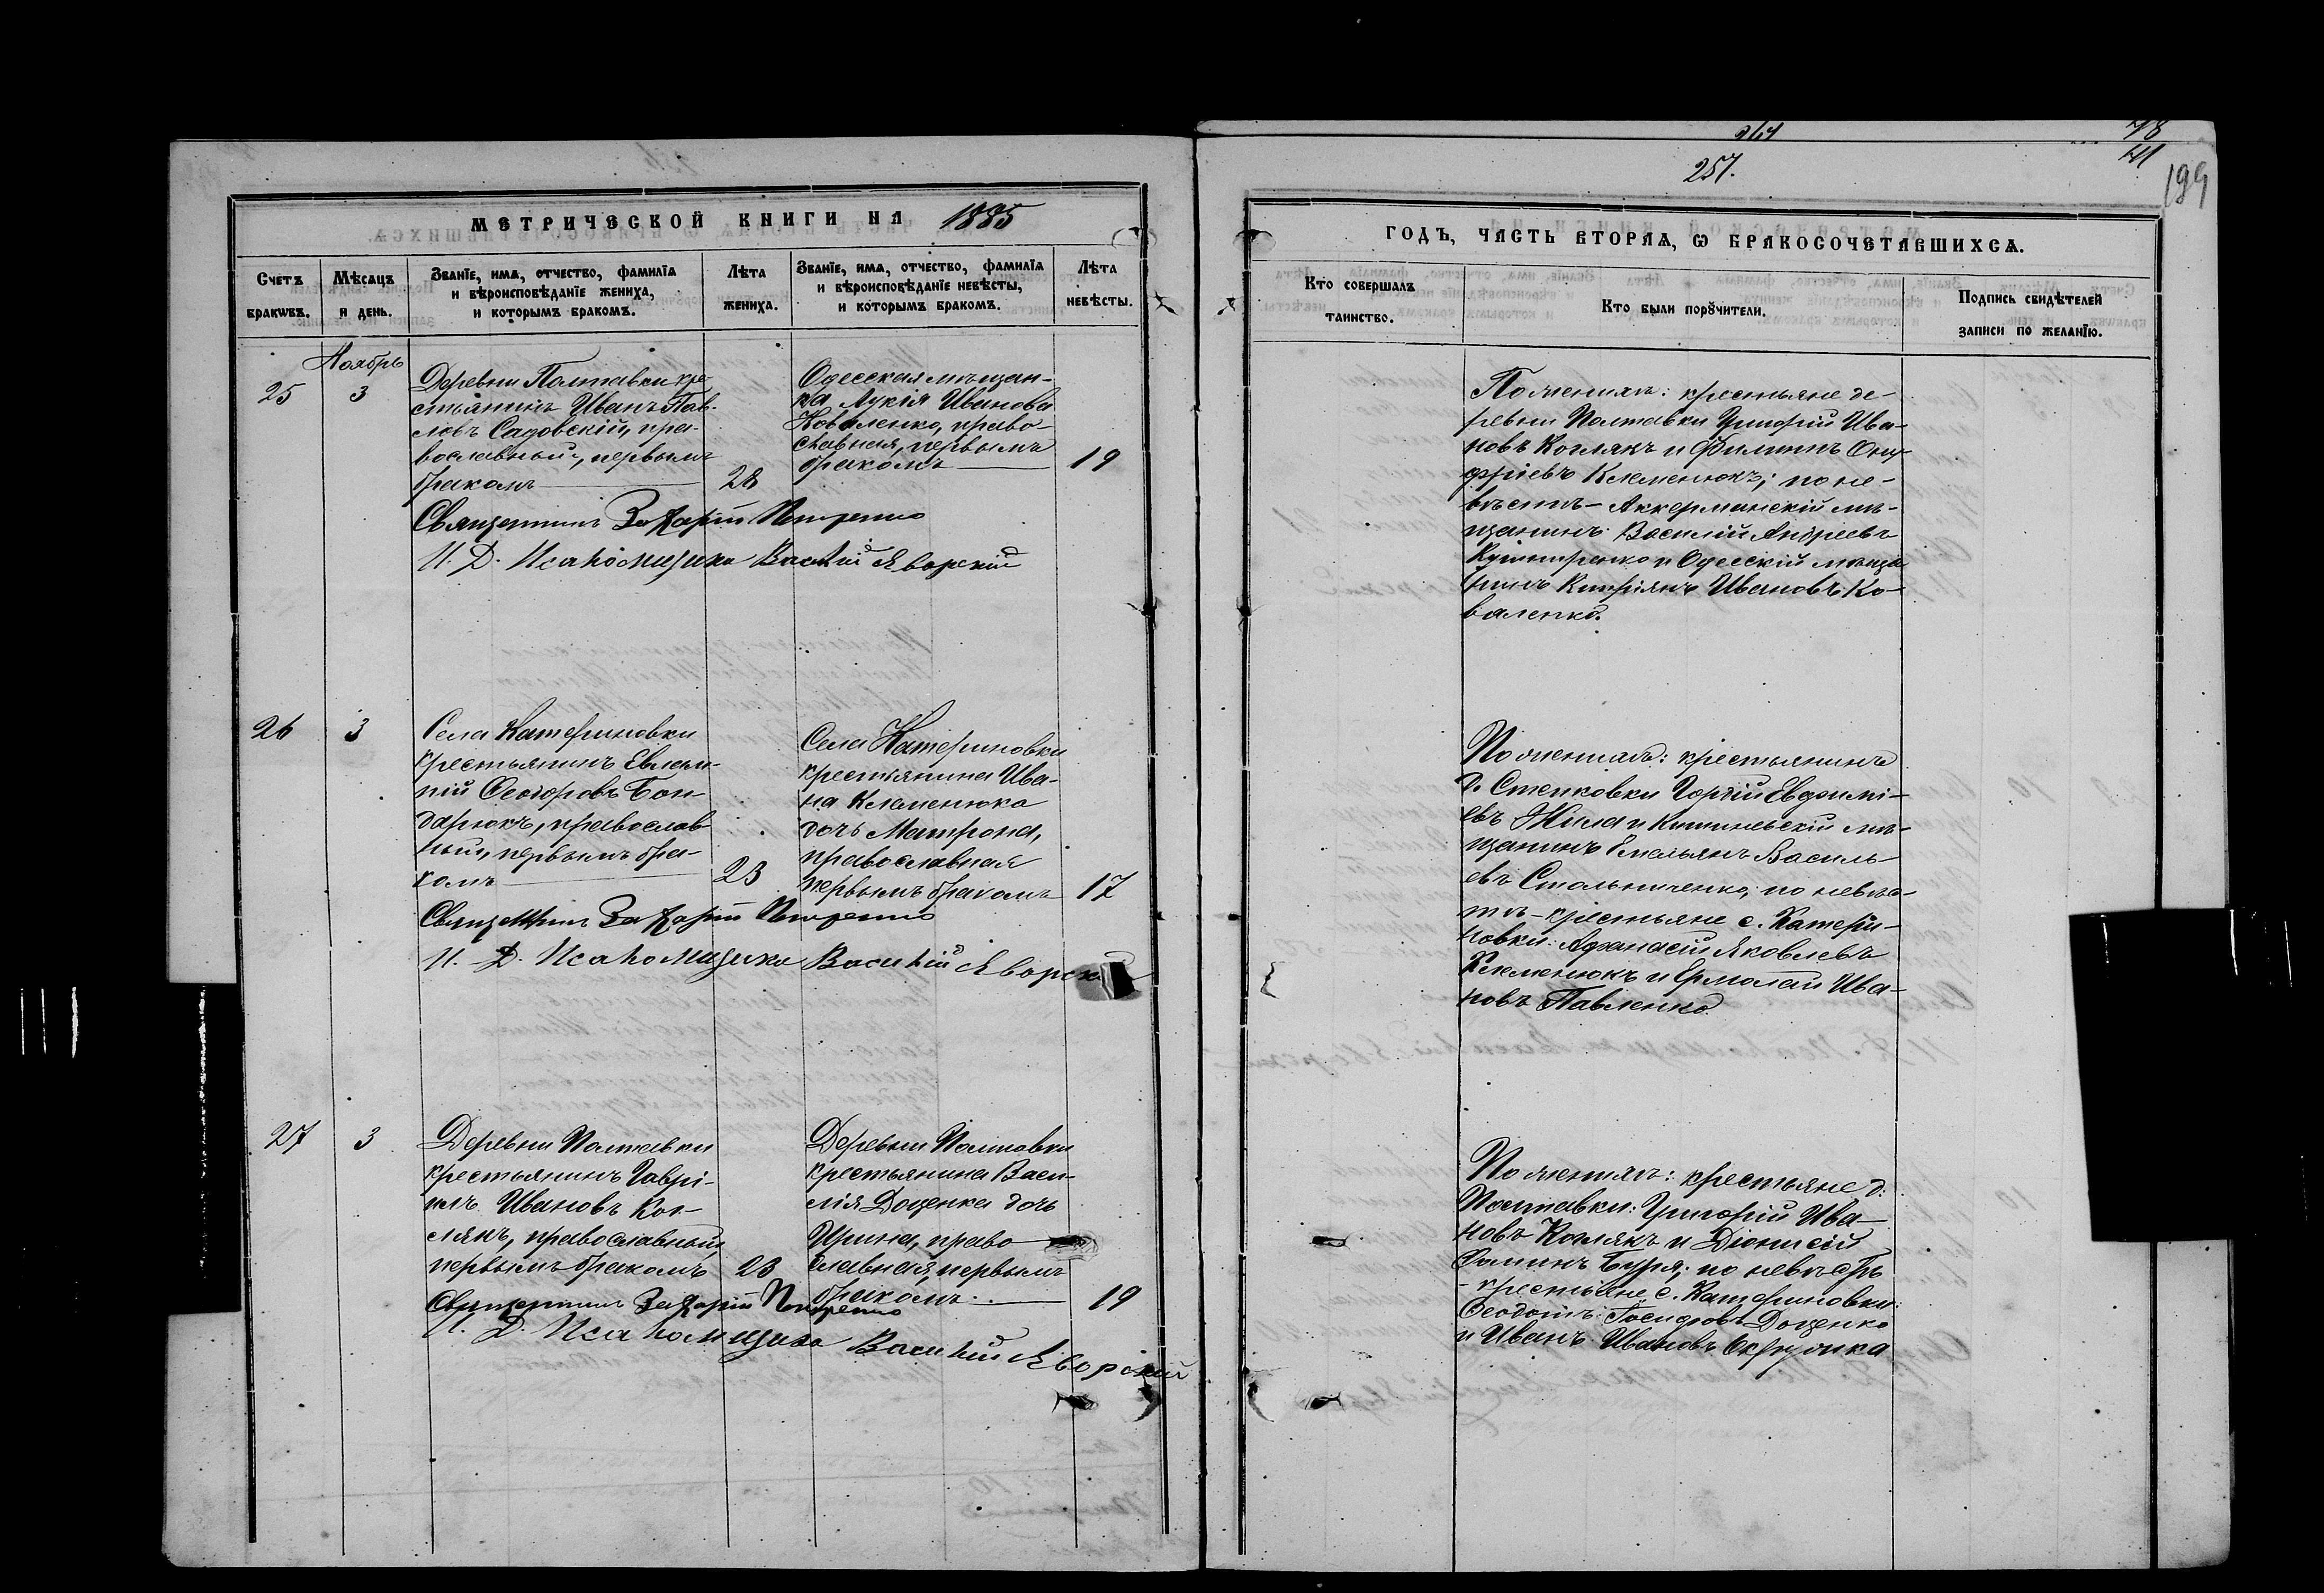 264
78
41
257.
199
МЕТРИЧЕСКОЙ КНИГИ НА 1885
ГОДЪ, ЧАСТЬ ВТОРАѦ, Ѡ БРАКОСОЧЕТАВШИХСѦ.
Счетъ браквъ.
Мѣсацъ и день.
Званїе, имѧ, отчество, фамилїа
и вѣроисповѣданїе жениха,
и которымъ бракомъ.
Лѣта
жениха.
Званїе, имѧ, отчество, фамилїа
и вѣроисповѣданїе невѣсты,
и которымъ бракомъ.
Лѣта
невѣсты.
Кто совершалъ
таинство.
Кто были порꙋчители.
Подпись свидѣтелей
записи по желанїю.
Ноябрь
25
3
Деревни Полтавки кре
стьянинъ Иванъ Пав-
ловъ Садовскій, пра-
вославный, первымъ
бракомъ
28
Одесская мѣщан-
ка Лукія Иванова
Коваленко, право-
славная, первымъ
бракомъ
19
Священникъ Захарій Петренко
И. Д. Псаломщика Василій Яворскій
По женихѣ: крестьяне де-
ревни Полтавки Григорій Ива-
новъ Коглякъ и Филиппъ Ону-
фріевъ Клеменюкъ; по не-
вѣстѣ - Аккерманскій мѣ-
щанинъ Василій Андреевъ
и Одесскій мѣща
нинъ Кипріянъ Ивановъ Ко-
валенко.
26
3
Села Катериновки
крестьянинъ Евлам-
пій Ѳеодоровъ Бон-
дарюкъ, православ-
ный, первымъ бра-
комъ
23
Села Катериновки
крестьянина Ива-
на Клеменюка
дочь Матрона,
православная
первымъ бракомъ
17
Священникъ Захарій Петренко
И. Д. Псаломщика Василій Яворскій
По женихѣ: крестьянинъ
д. Степковки Евфимі-
евъ Жила и Кишиневскій мѣ-
щанинъ Емельянъ Василь-
евъ Стольниченко; по невѣс-
тѣ - крестьяне с. Катери-
новки: Афанасій Яковлевъ
Клеменюкъ и Ермолай Ива-
новъ Павленко
27
3
Деревни Полтавки
крестьянинъ Гаврі-
илъ Ивановъ Ког-
лякъ, православный,
первымъ бракомъ
23
Деревни Полтавки
крестьянина Васи-
лія Доценка дочь
Ирина, право-
славная, первымъ
бракомъ.
19
Священникъ Захарій Петренко
И. Д. Псаломщика Василій Яворскій
По женихѣ: крестьяне д.
Полтавки: Григорій Ива-
новъ Коглякъ и Діонисій
Ѳоминъ Буря; по невѣстѣ
- крестьяне с. Катериновки:
Ѳеодотъ Іосифовъ Доценко
и Иванъ Ивановъ